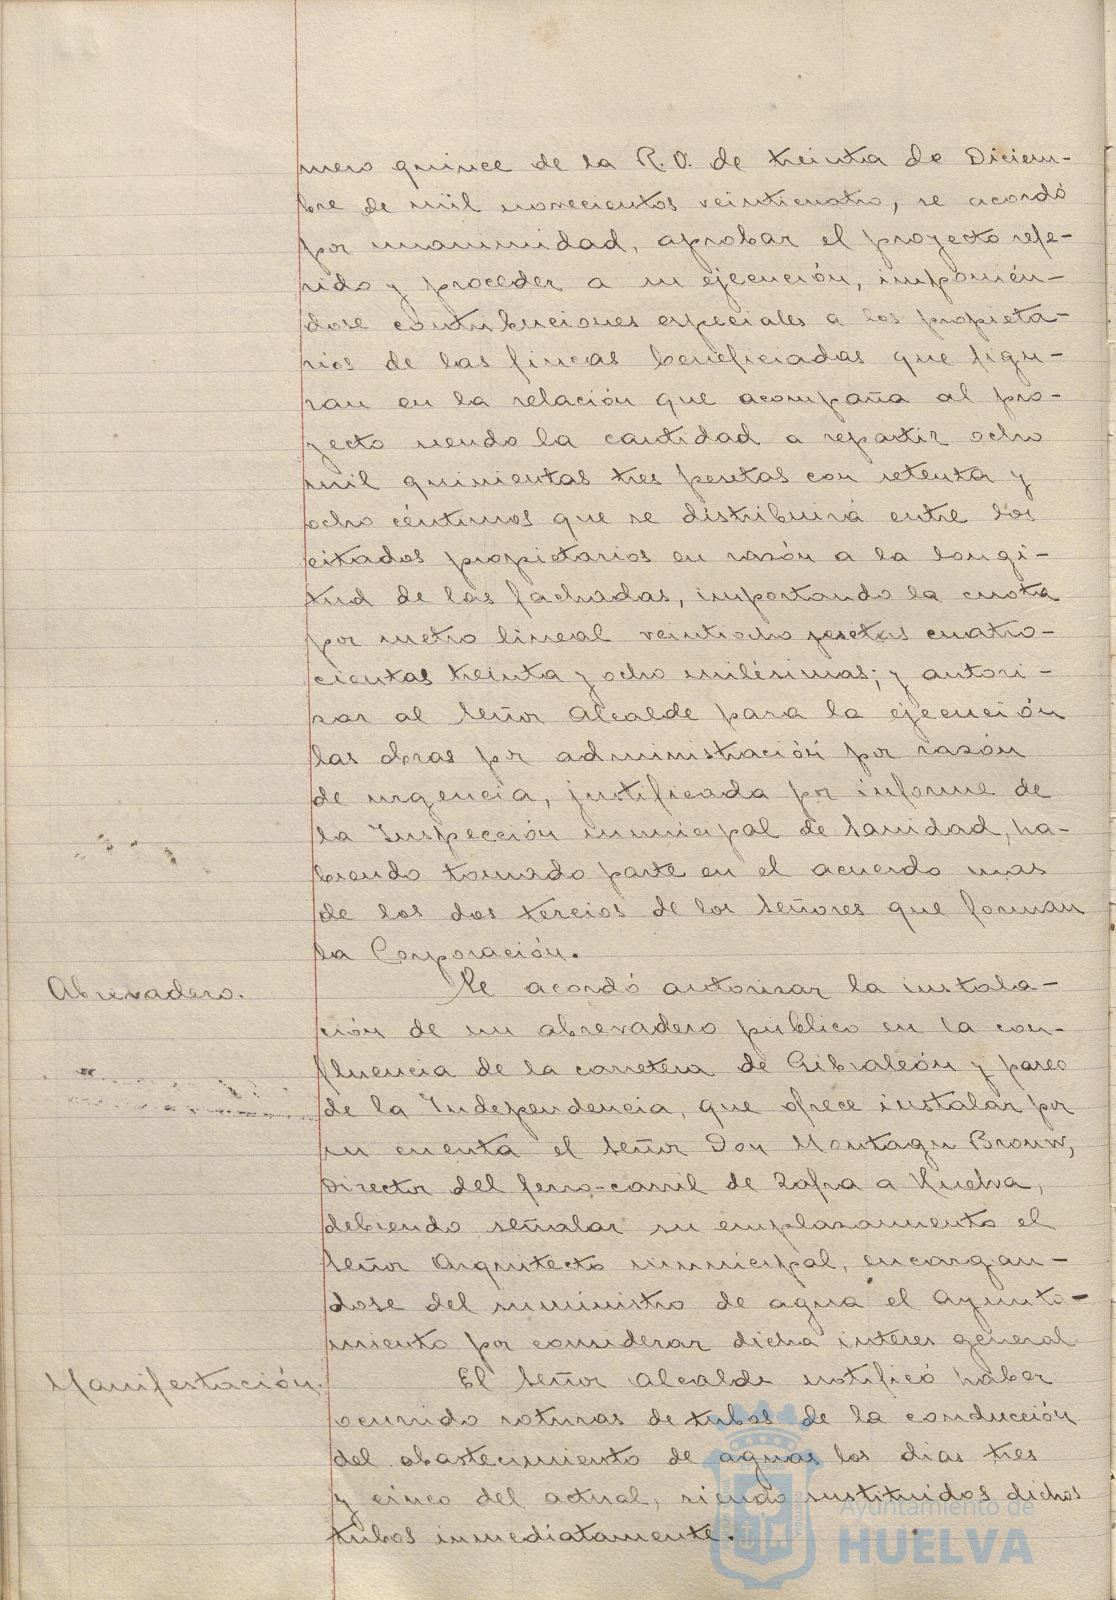 mero quince de la R. O. de treinta de Diciem-
bre de mil novecientos veinticuatro, se acordó
por unanimidad, aprobar el proyecto refe-
rido y proceder a su ejecución, imponién-
dose contribuciones especiales a los propieta-
rios de las fincas beneficiadas que figu-
ran en la relación que acompaña al pro-
yecto siendo la cantidad a repartir ocho
mil quinientas tres pesetas con setenta y
ocho céntimos que se distribuirá entre los
citados propietarios en razón a la longi-
tud de las fachadas, importando la cuota
por metro lineal veintiocho pesetas cuatro-
cientas treinta y ocho milésimas; y autori-
zar al Señor Alcalde para la ejecución
las obras por administración por razón
de urgencia, justificada por informe de
la Inspección municipal de Sanidad, ha-
biendo tomado parte en el acuerdo mas
de los dos tercios de los Señores que forman
la Corporación.
Abrevadero.
Se acordó autorizar la instala-
ción de un abrevadero público en la con-
fluencia de la carretera de Gibraleón y paseo
de la Independencia, que ofrece instalar por
su cuenta el Señor Don Montagu Brown,
Director del ferro-carril de Zafra a Huelva,
debiendo señalar su emplazamiento el
Señor Arquitecto municipal, encargan-
dose del suministro de agua el Ayunta-
miento por considerar dicha interes general
Manifestación.
El Señor Alcalde notificó haber
ocurrido roturas de tubos de la conducción
del abastecimiento de aguas los dias tres
y cinco del actual, siendo sustituidos dichos
tubos inmediatamente.
Ayuntamiento de
HUELVA